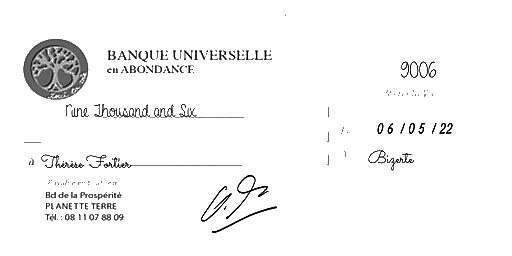 BANQUE UNIVERSELLE
en ABONDANCE
9006
Nine Thousand and Six
06/05/22
à Thérèse Fortier
Bizerte
Bd de la Prospérité
PLANETTE TERRE
Tél. : 08 11 07 88 09